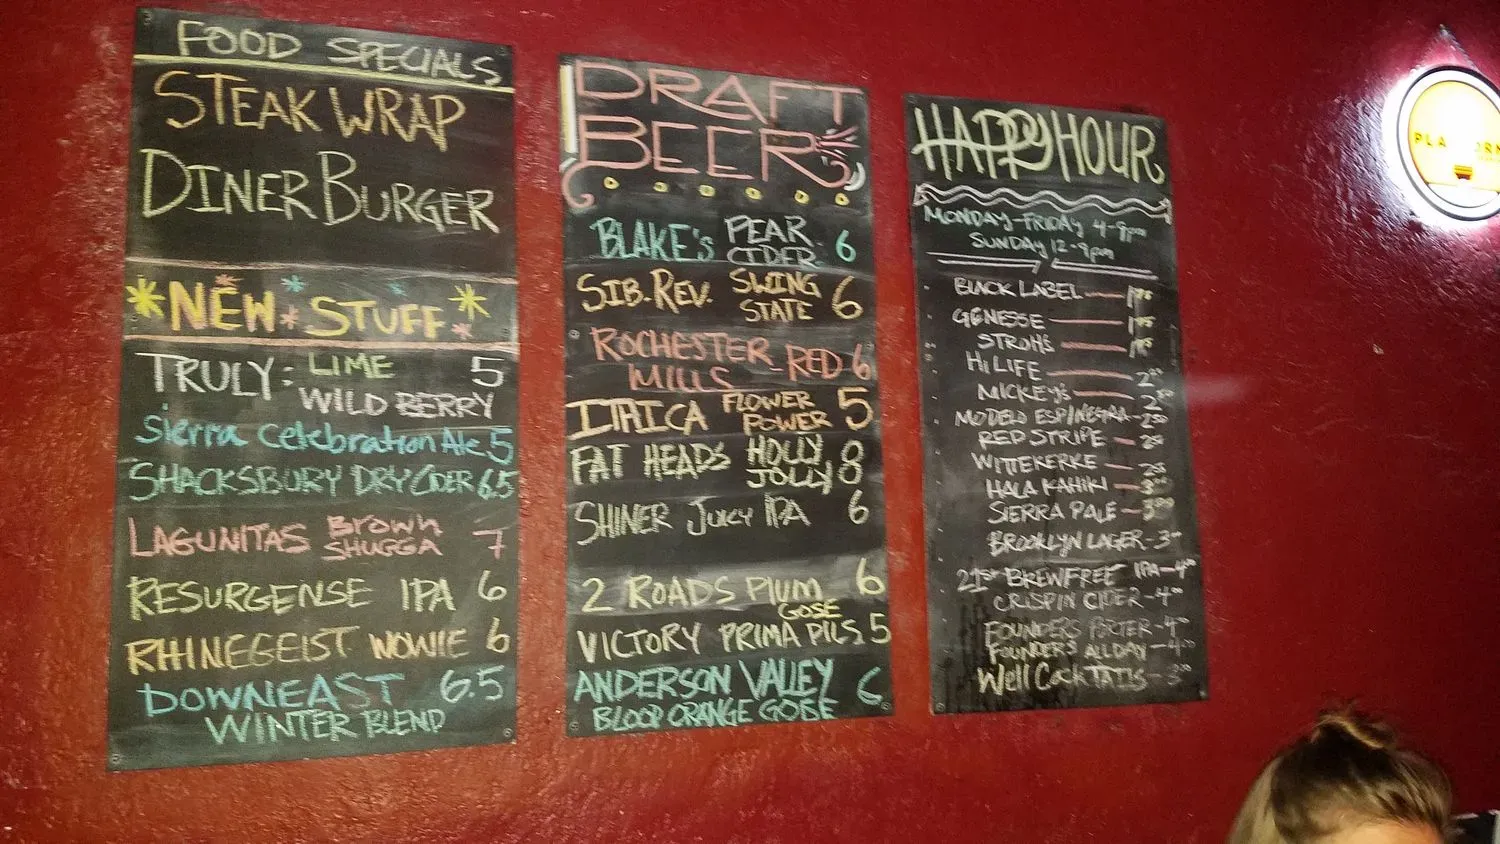 FOOD SPECIALS
STEAK WRAP
DINER BURGER
NEW STUFF
TRULY: LIME 5
WILD BERRY
Sierra Celebration Ale 5
SHACKSBURY DRY CIDER 6.5
LAGUNITAS Brown 7
SHUGGA
RESURGENSE IPA 6
RHINEGEIST WOWIE 6
DOWNEAST 6.5
WINTER BLEND
DRAFT
BEER
BLAKE'S PEAR 6
CIDER
SIB. REV. SWING 6
STATE
ROCHESTER
MILLS - RED 6
ITHICA FLOWER 5
POWER
FAT HEADS HOLLY 8
JOLLY
SHINER JUICY IPA 6
2 ROADS PLUM 6
GOSE
VICTORY PRIMA PILS 5
ANDERSON VALLEY 6
BLOOD ORANGE GOSE
HAPPY HOUR
MONDAY-FRIDAY 4-9pm
SUNDAY 12-9pm
BLACK LABEL 1.75
GENESSE 1.75
STROHS
HI LIFE 2.00
MICKEY'S 2
MODELO ESP/NEGRA 2.50
RED STRIPE 2.50
WITTEKERKE 2.50
HALA KAHIKI 3.00
SIERRA PALE 3.00
BROOKLYN LAGER - 3.00
21st BREWFREE IPA - 4.00
CRISPIN CIDER - 4.00
FOUNDERS PORTER - 4.00
FOUNDERS ALL DAY - 4.00
Well COCKTAILS - 3.00